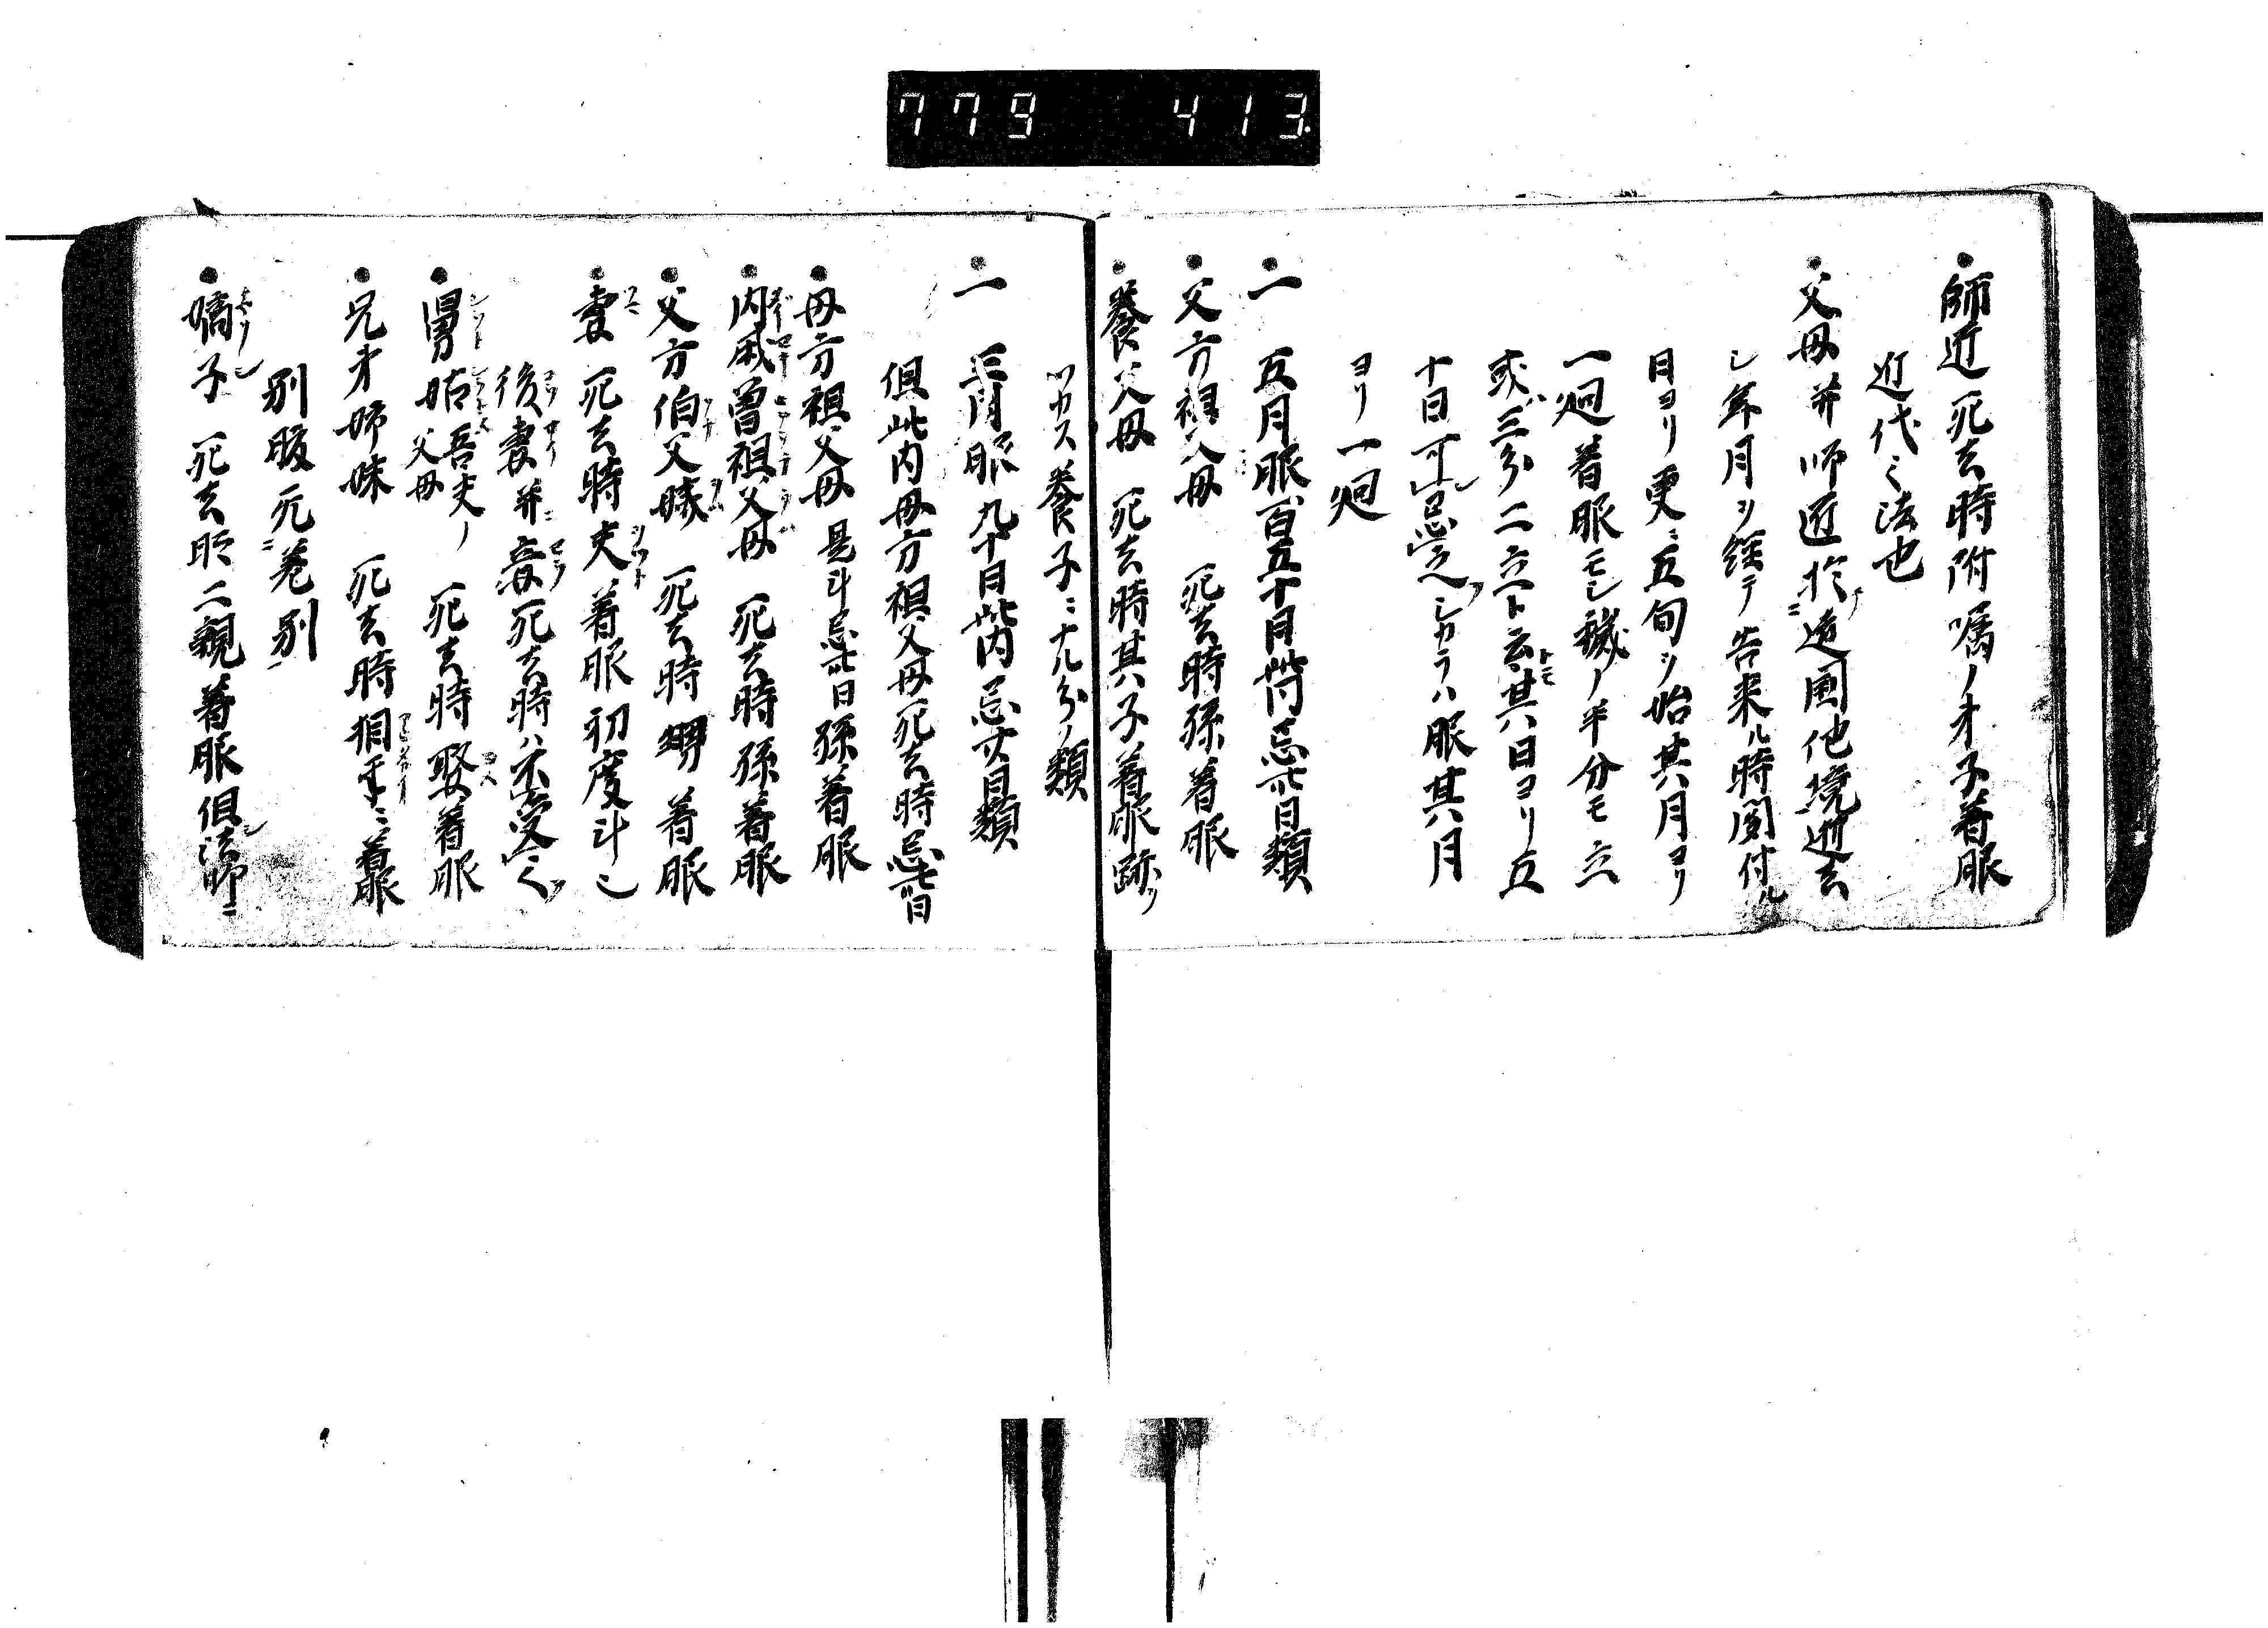 779 413
師匠死去時附嘱ノ才子着服
近代之法也
父母并師匠於遠国他境逝去
シ年月ヲ経テ告来ル時聞付ル
日ヨリ更ニ五旬ヲ始其月ヨリ
一廻着服モシ穢ノ半分モ立
或ハ三分二立ト云トモ其日ヨリ五
十日可忌受シカラハ服其月
ヨリ一廻
一 五月服百五十日此内忌卅日類
父方祖父母 死去時孫着服
養父母 死去時其子着服跡ヲ
ツカス養子ニナル分ノ類
一 三月服九十日此内忌廿日類
但此内母方祖父母死去時忌卅日
母方祖父母 是斗忌卅日孫着服
内戚曽祖父母 死去時孫着服
父方伯父姨 死去時甥着服
妻 死去時夫着服初度斗シ
後妻并ニ妾死去時ハ不受之
舅姑吾夫ノ父母 死去時娶着服
兄才姉妹 死去時相互ニ着服
別腹ニ無差別
嫡子 死去時二親着服但法師ニ